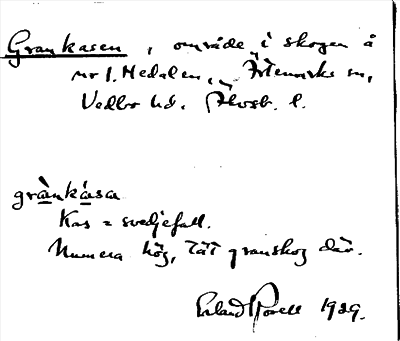 Grankasen, område i skogen å
nr 1. Hedalen, Färtennarks sn,
Vedbo hd. Älvsb. l.
grànkása
Kas = svedjefall.
Numera hög, tät granskog där.
Erland Rosell 1929.